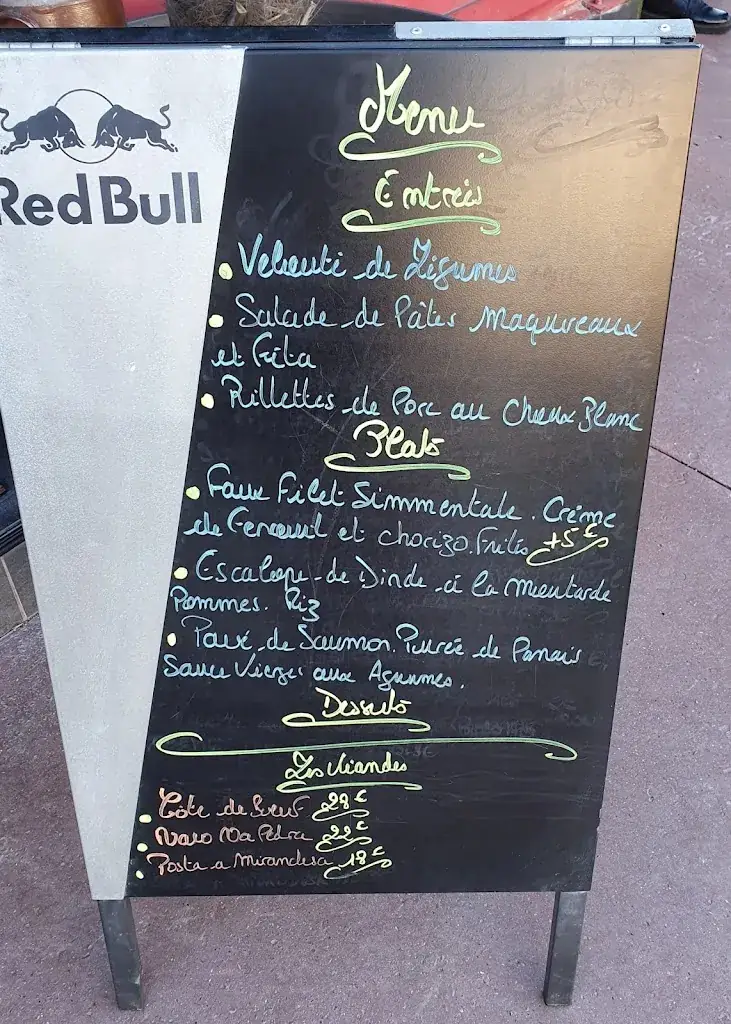 Red Bull
Menu
Entrées
Velouté de Légumes
Salade de Pâtes Maquereaux
et Féta
Rillettes de Porc au Cheveux Blanc
Plats
Faux Filet Simmentale. Crème
de Fenouil et chorizo. Frites +5€
Escalope de Dinde à la Moutarde
Pommes. Riz
Pavé de Saumon. Purée de Panais
Sauce Vierge aux Agrumes.
Desserts
Les Viandes
Côte de Boeuf 28€
Naco Na Pedra 22€
Posta a Mirandesa 18€